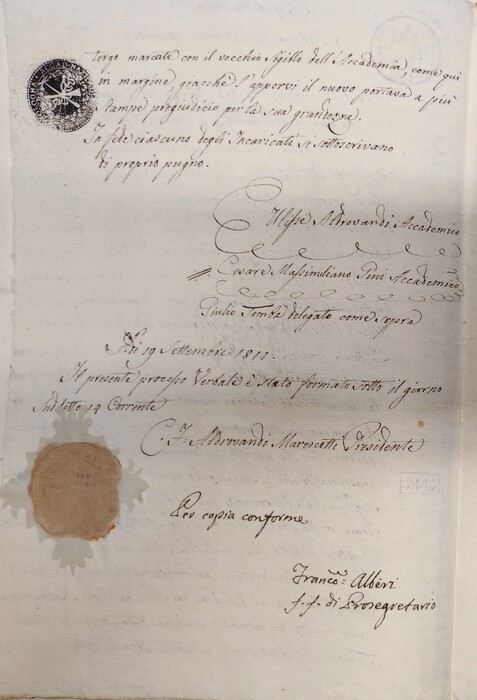 tergo marcate con il vecchio Sigillo dell'Accademia, come qui
in margine, giacchè l'apporvi il nuovo portava a più
stampe pregiudicio per la sua grandezza.
In fede ciascuno degli Incaricati si sottoscrivano
di proprio pugno.
Ulisse Aldrovandi Accademico
Cesare Massimiliano Gini Accademico
Giulio Tomba delegato come Sopra
Adi 19 Settembre 1811.
Il presente processo Verbale è stato formato sotto il giorno
Suddetto 14 Corrente
C. F. Aldrovandi Marescotti Presidente
Per copia conforme
Franco: Alberi
f. f. di Prosegretario